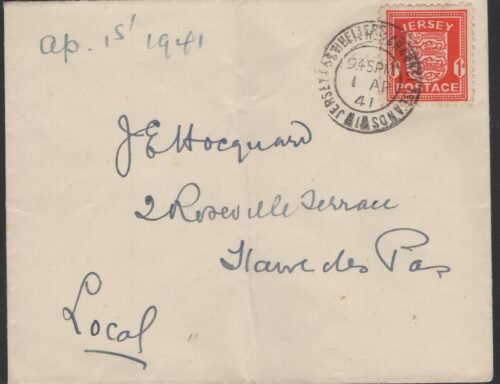 ap. 1st 1941
JERSEY
1d 1d
POSTAGE
JERSEY CHANNEL ISLANDS
9 45 PM
1 AP
41
J E Hocquard
2 Roseville Terrace
Havre des Pas
Local